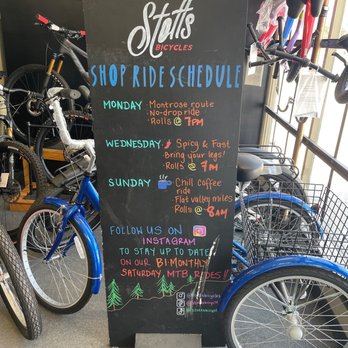 Stotts
BICYCLES
SHOP RIDE SCHEDULE
MONDAY - Montrose route
- No-drop ride
- Rolls @ 7PM
WEDNESDAY - Spicy & Fast
- Bring your legs!
- Rolls @ 7PM
SUNDAY - Chill Coffee
ride
- Flat valley miles
- Rolls @ 8AM
FOLLOW US ON
INSTAGRAM
TO STAY UP TO DATE
ON OUR BI-MONTHLY
SATURDAY MTB RIDES!!